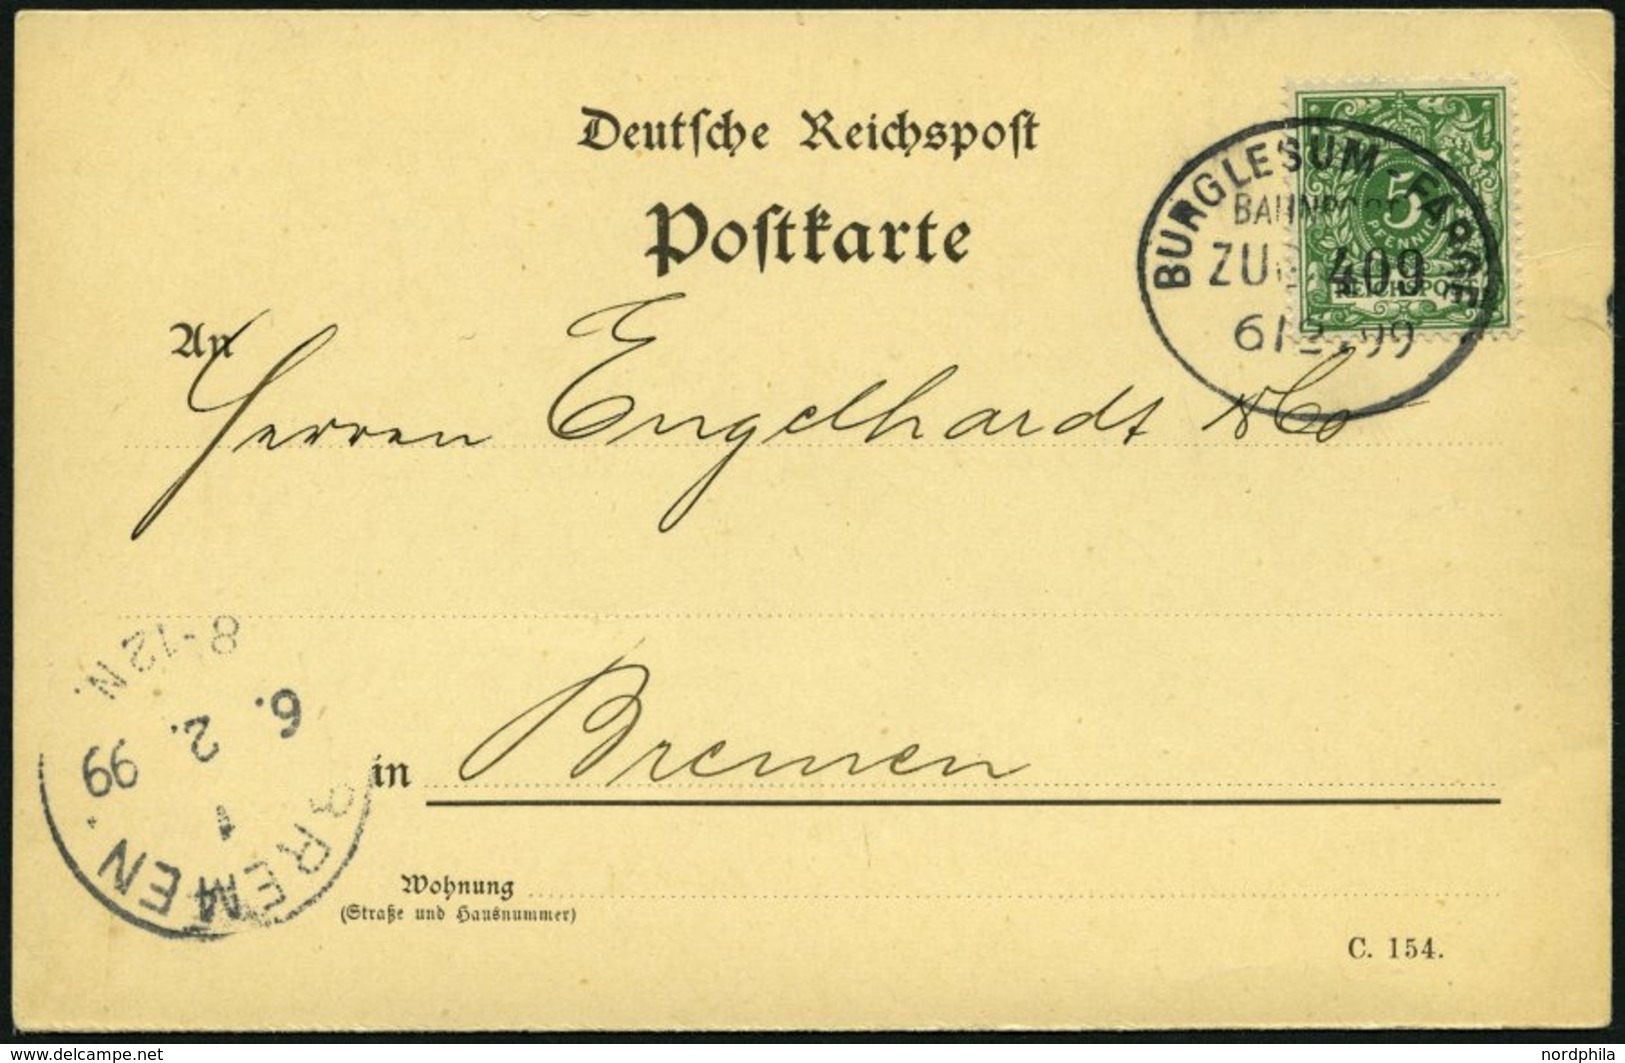 Deutsche Reichspost
Postkarte
BURGLESUM - FARGE
BAHNPOST
ZUG 409
6/2 99
5
PFENNIG
REICHSPOST
An
Herren Engelhardt & Co
in Bremen
8-12 N.
6. 2. 99
1
BREMEN.
Wohnung
(Straße und Hausnummer)
C. 154.
www.delcampe.net
nordphila